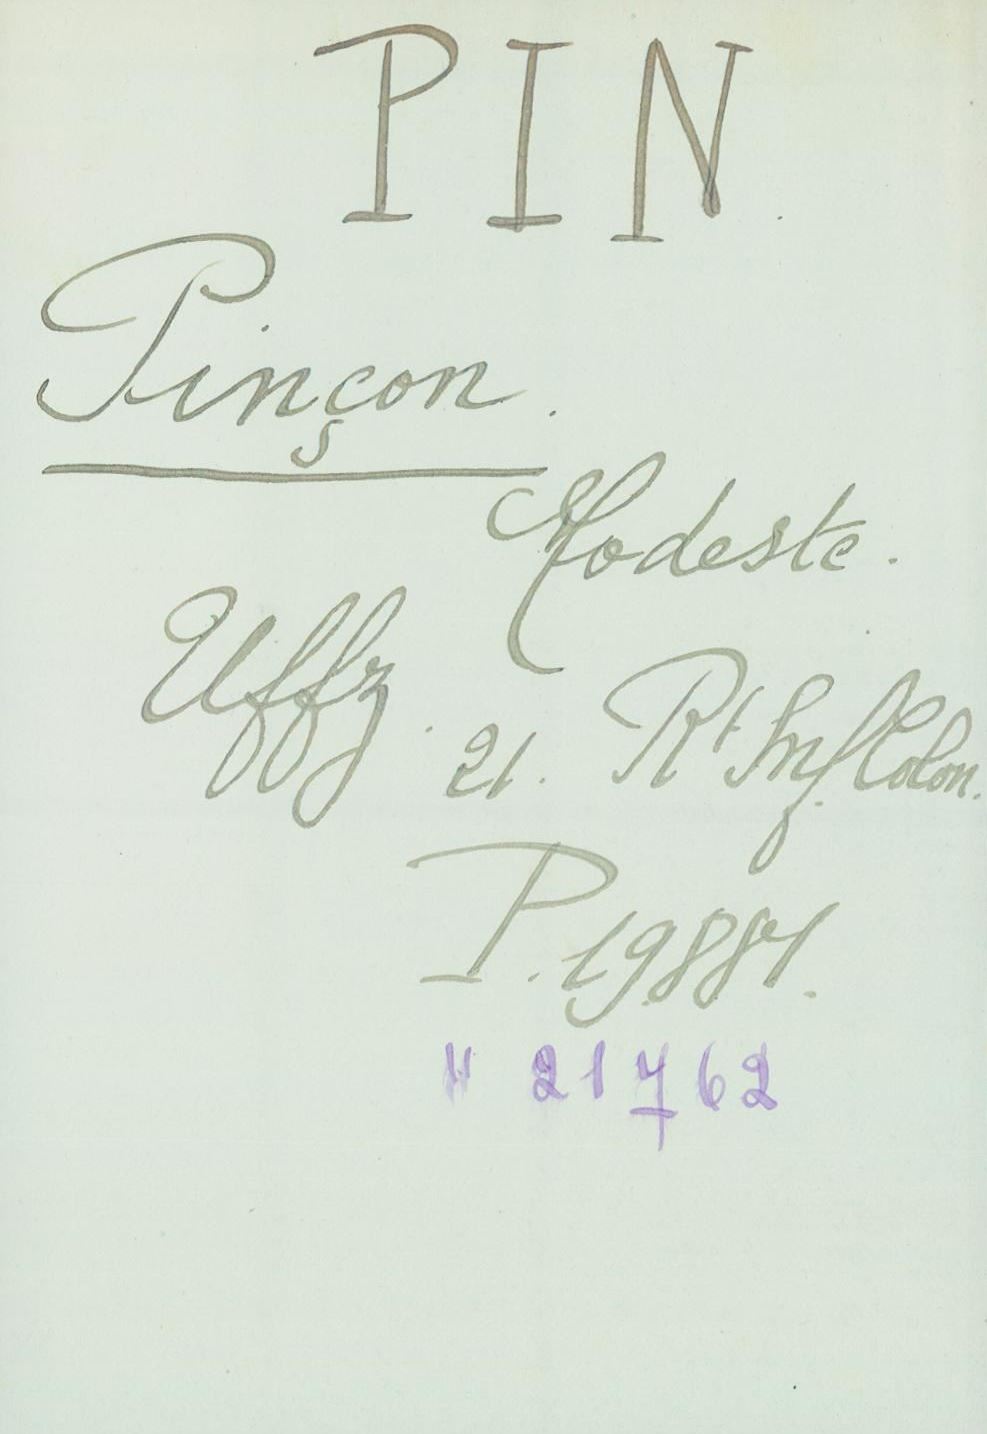 PIN
Pinçon.
Modeste.
Uffz. 21. Rt Inf Colon.
P. 19884.
" 21762